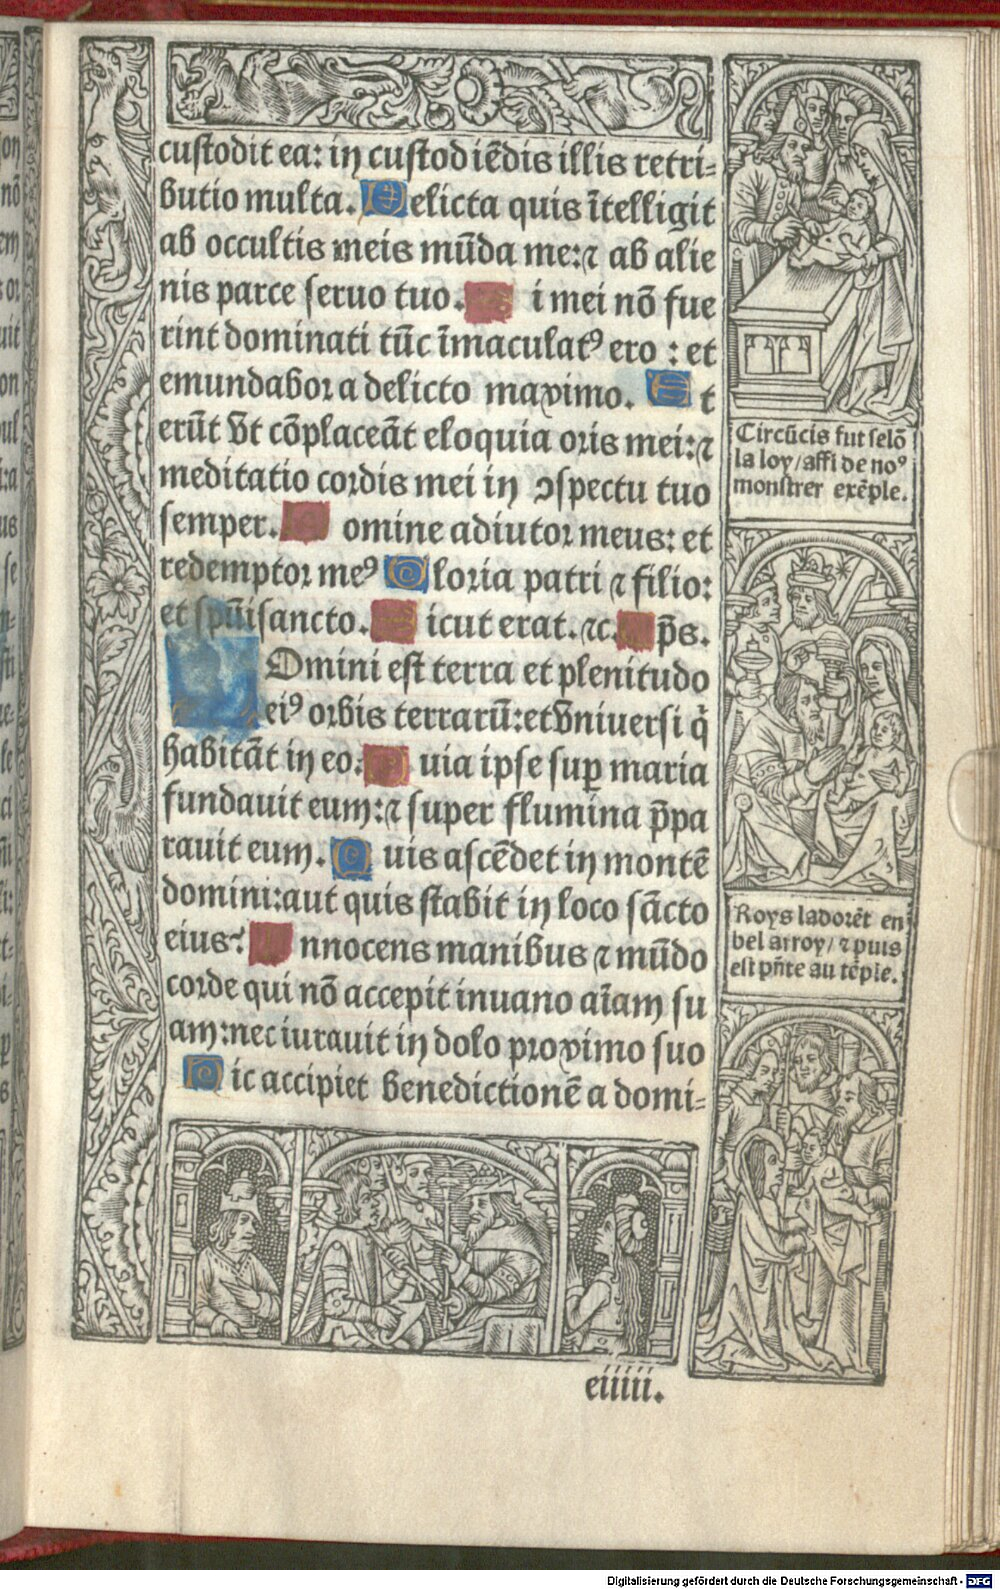 custodit ea: in custodiēdis illis retri-
butio multa. Delicta quis ītelligit
ab occultis meis mūda me: ⁊ ab alie
nis parce seruo tuo. S i mei nō fue
rint dominati tūc īmaculatꝰ ero : et
emundabor a delicto maximo. E t
erūt vt cōplaceāt eloquia oris mei: ⁊
meditatio cordis mei in ↄspectu tuo
semper. D omine adiutor meus: et
redemptor meꝰ Gloria patri ⁊ filio:
et spūisancto. S icut erat. ⁊c. p̄s.
Omini est terra et plenitudo
eiꝰ orbis terrarū: et vniuersi q̄
habitāt in eo. Q uia ipse suꝑ maria
fundauit eum: ⁊ super flumina p̄pa
rauit eum. Q uis ascēdet in montē
domini: aut quis stabit in loco sācto
eius? I nnocens manibus ⁊ mūdo
corde qui nō accepit in uano aīam su
am: nec iurauit in dolo proximo suo
H ic accipiet benedictionē a domi-
Circūcis fut selō
la loy / affi de noꝰ
monstrer exēple.
Roys ladorēt en
bel arroy / ⁊ puis
est pn̄te au tēple.
eiiiii.
Digitalisierung gefördert durch die Deutsche Forschungsgemeinschaft - DFG